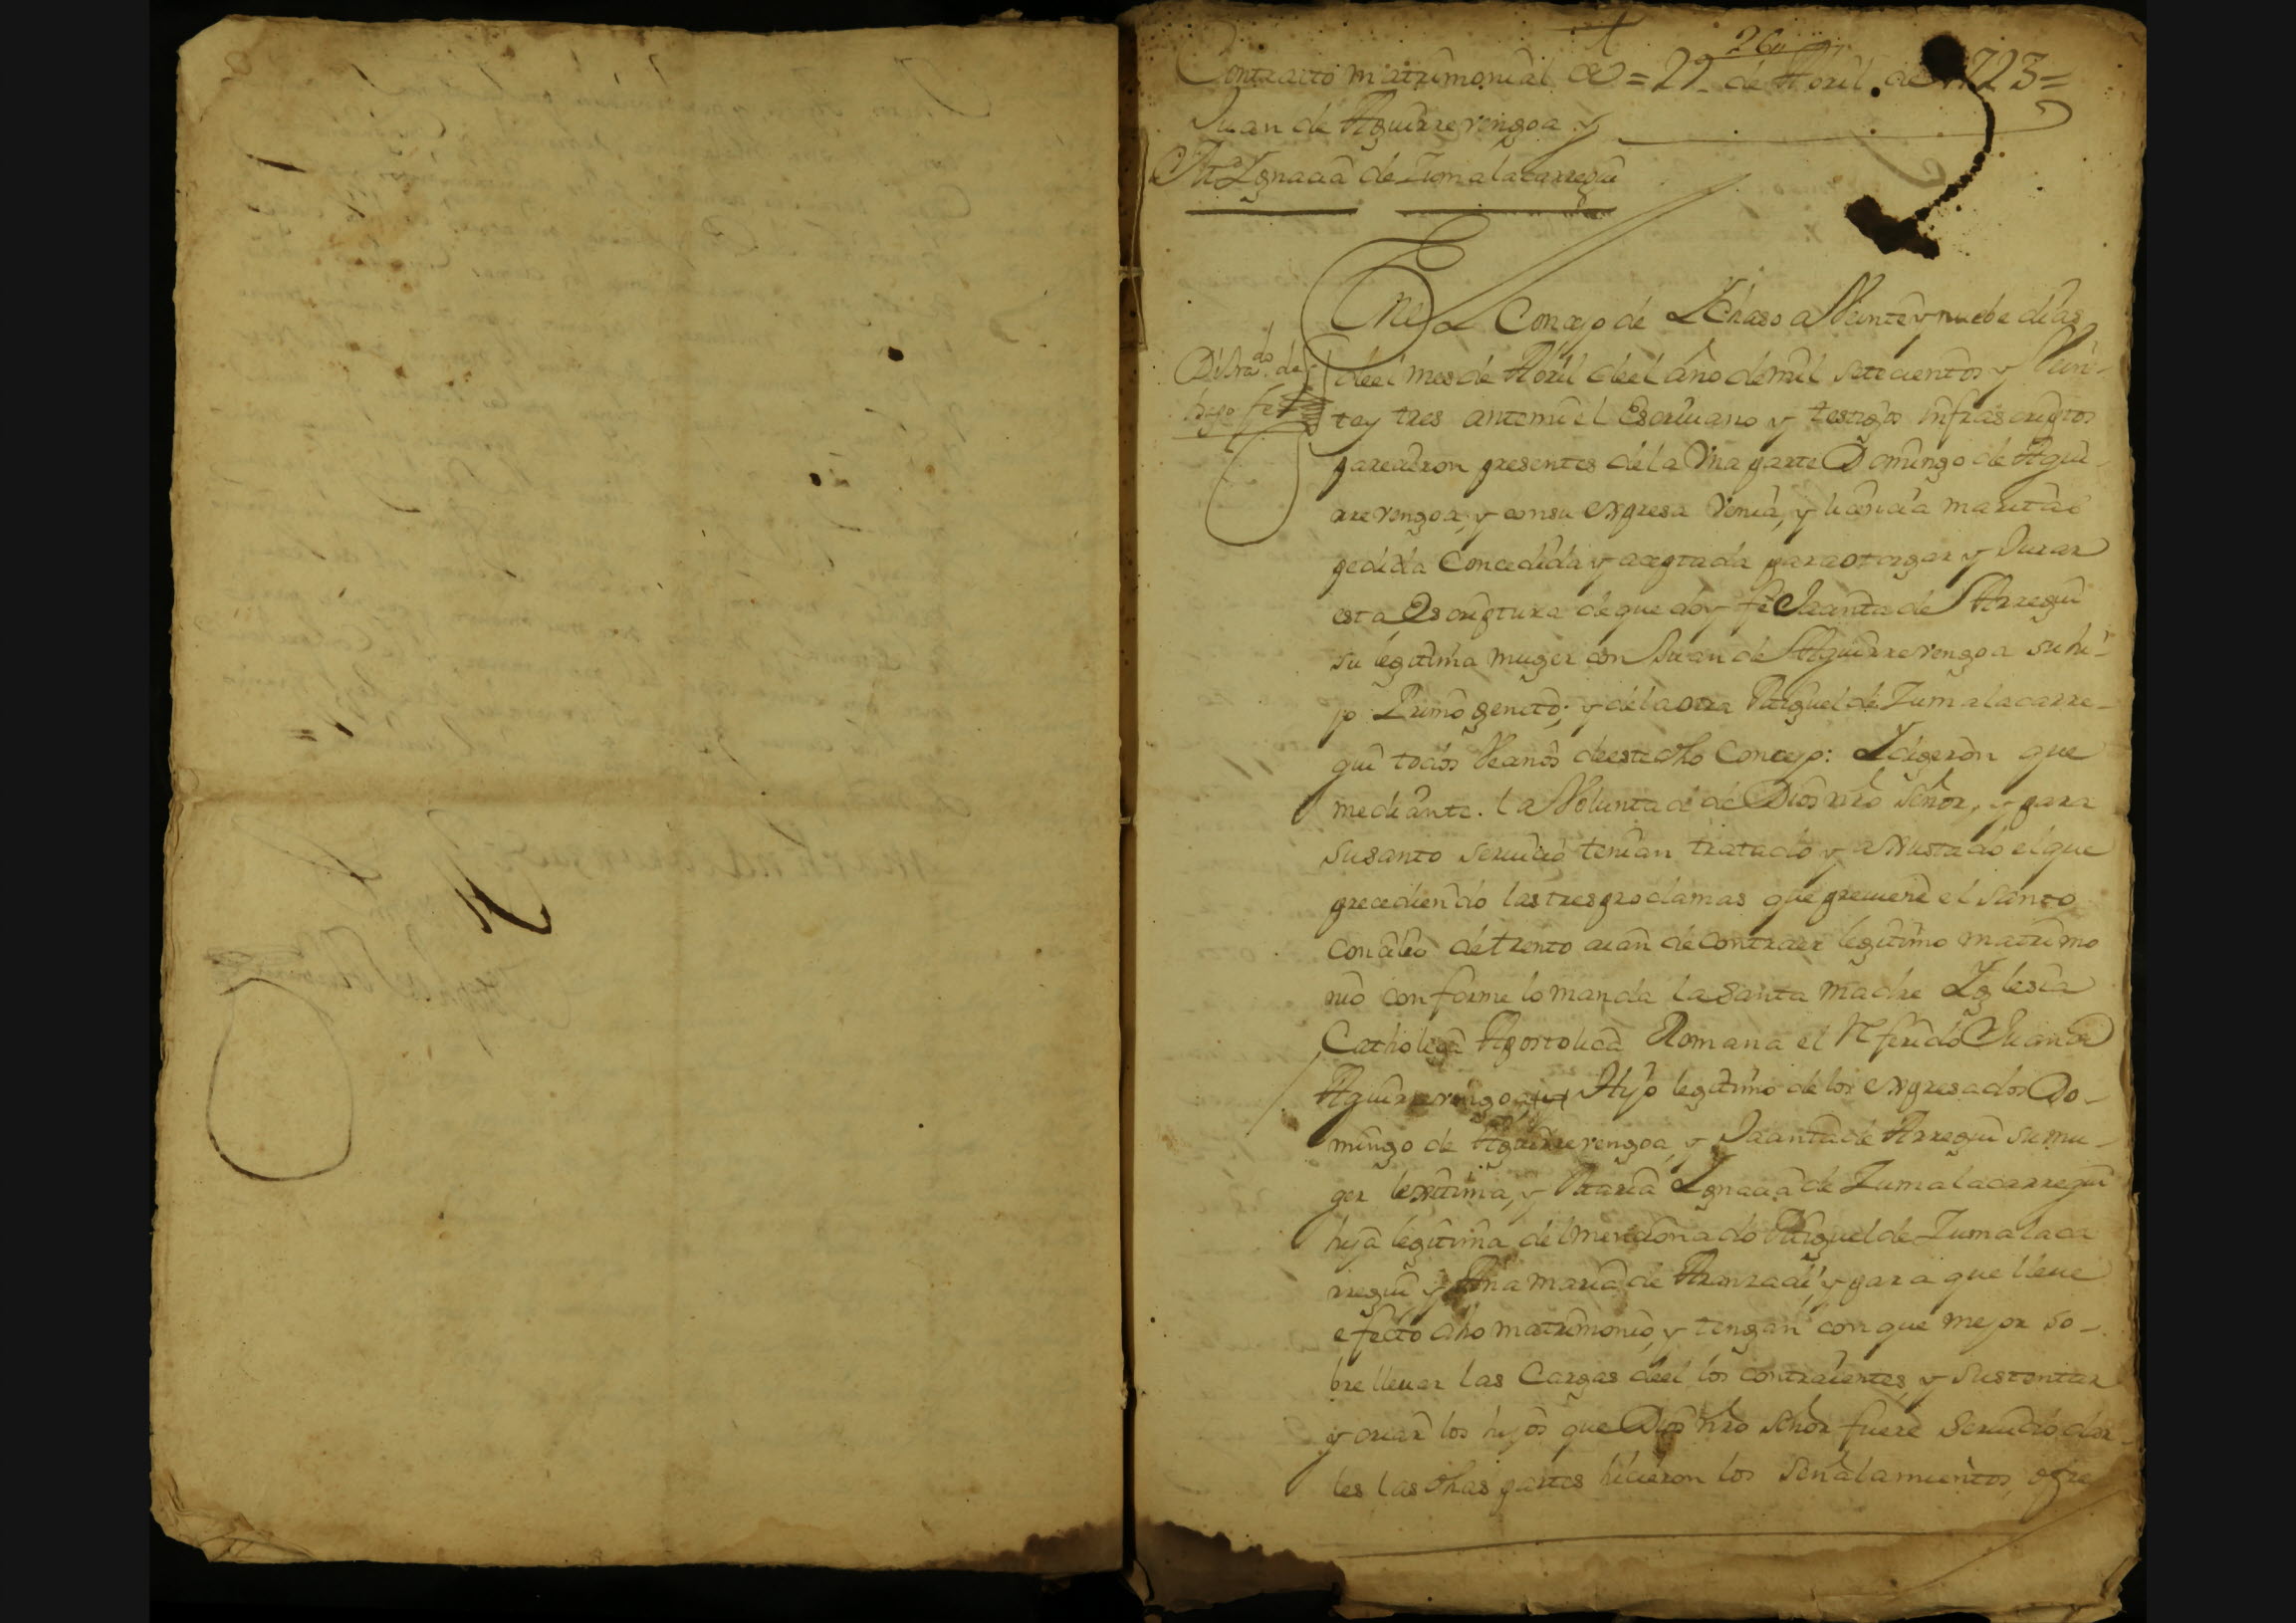 26
Contracto matrimonial de = 29 de Abril de 1723 =
Juan de Aguirrevengoa y
Mª Ygnacia de Zumalacarregui
En el Concejo de Ychaso a Veinte y nuebe dias
de el mes de Abril de el año de mil setecientos y Vein-
te y tres ante mi el Escriuano y testigos infrascriptos
parecieron presentes de la Vna parte Domingo de Agui-
rrevengoa, y con su expresa Venia, y licencia marital
pedida Concedida y aceptada para otorgar y Jurar
esta Escriptura de que doy fe Jacinta de Arregui
su legitima muger con Juan de Aguirrevengoa su hi-
jo Primogenito; y de la otra Miguel de Zumalacarre-
gui todos Vecinos de este dho Concejo: Y dixeron que
mediante la Voluntad de Dios nro Señor, y para
su santo seruicio tenian tratado y axustado el que
precediendo las tres proclamas que preuiene el Santo
Concilio de trento aian de contraer legitimo matrimo
nio conforme lo manda la Santa Madre Yglesia
Catholica Apostolica Romana el referido Juan de
Aguirrevengoa Hijo legitimo de los expresados Do-
mingo de Aguirrevengoa, y Jacinta de Arregui su mu-
ger lexitima, y Maria Ygnacia de Zumalacarregui
hija legitima del mencionado Miguel de Zumalaca
rregui y Ana Maria de Aranzadi, y para que lleue
efecto dho matrimonio, y tengan con que mejor so-
brelleuar las Cargas de el los contraientes y sustentar
y criar los hijos que Dios nro Señor fuere seruido dar-
les las dhas partes hicieron los señalamientos, ofre
Dibra.do de
hijo fe